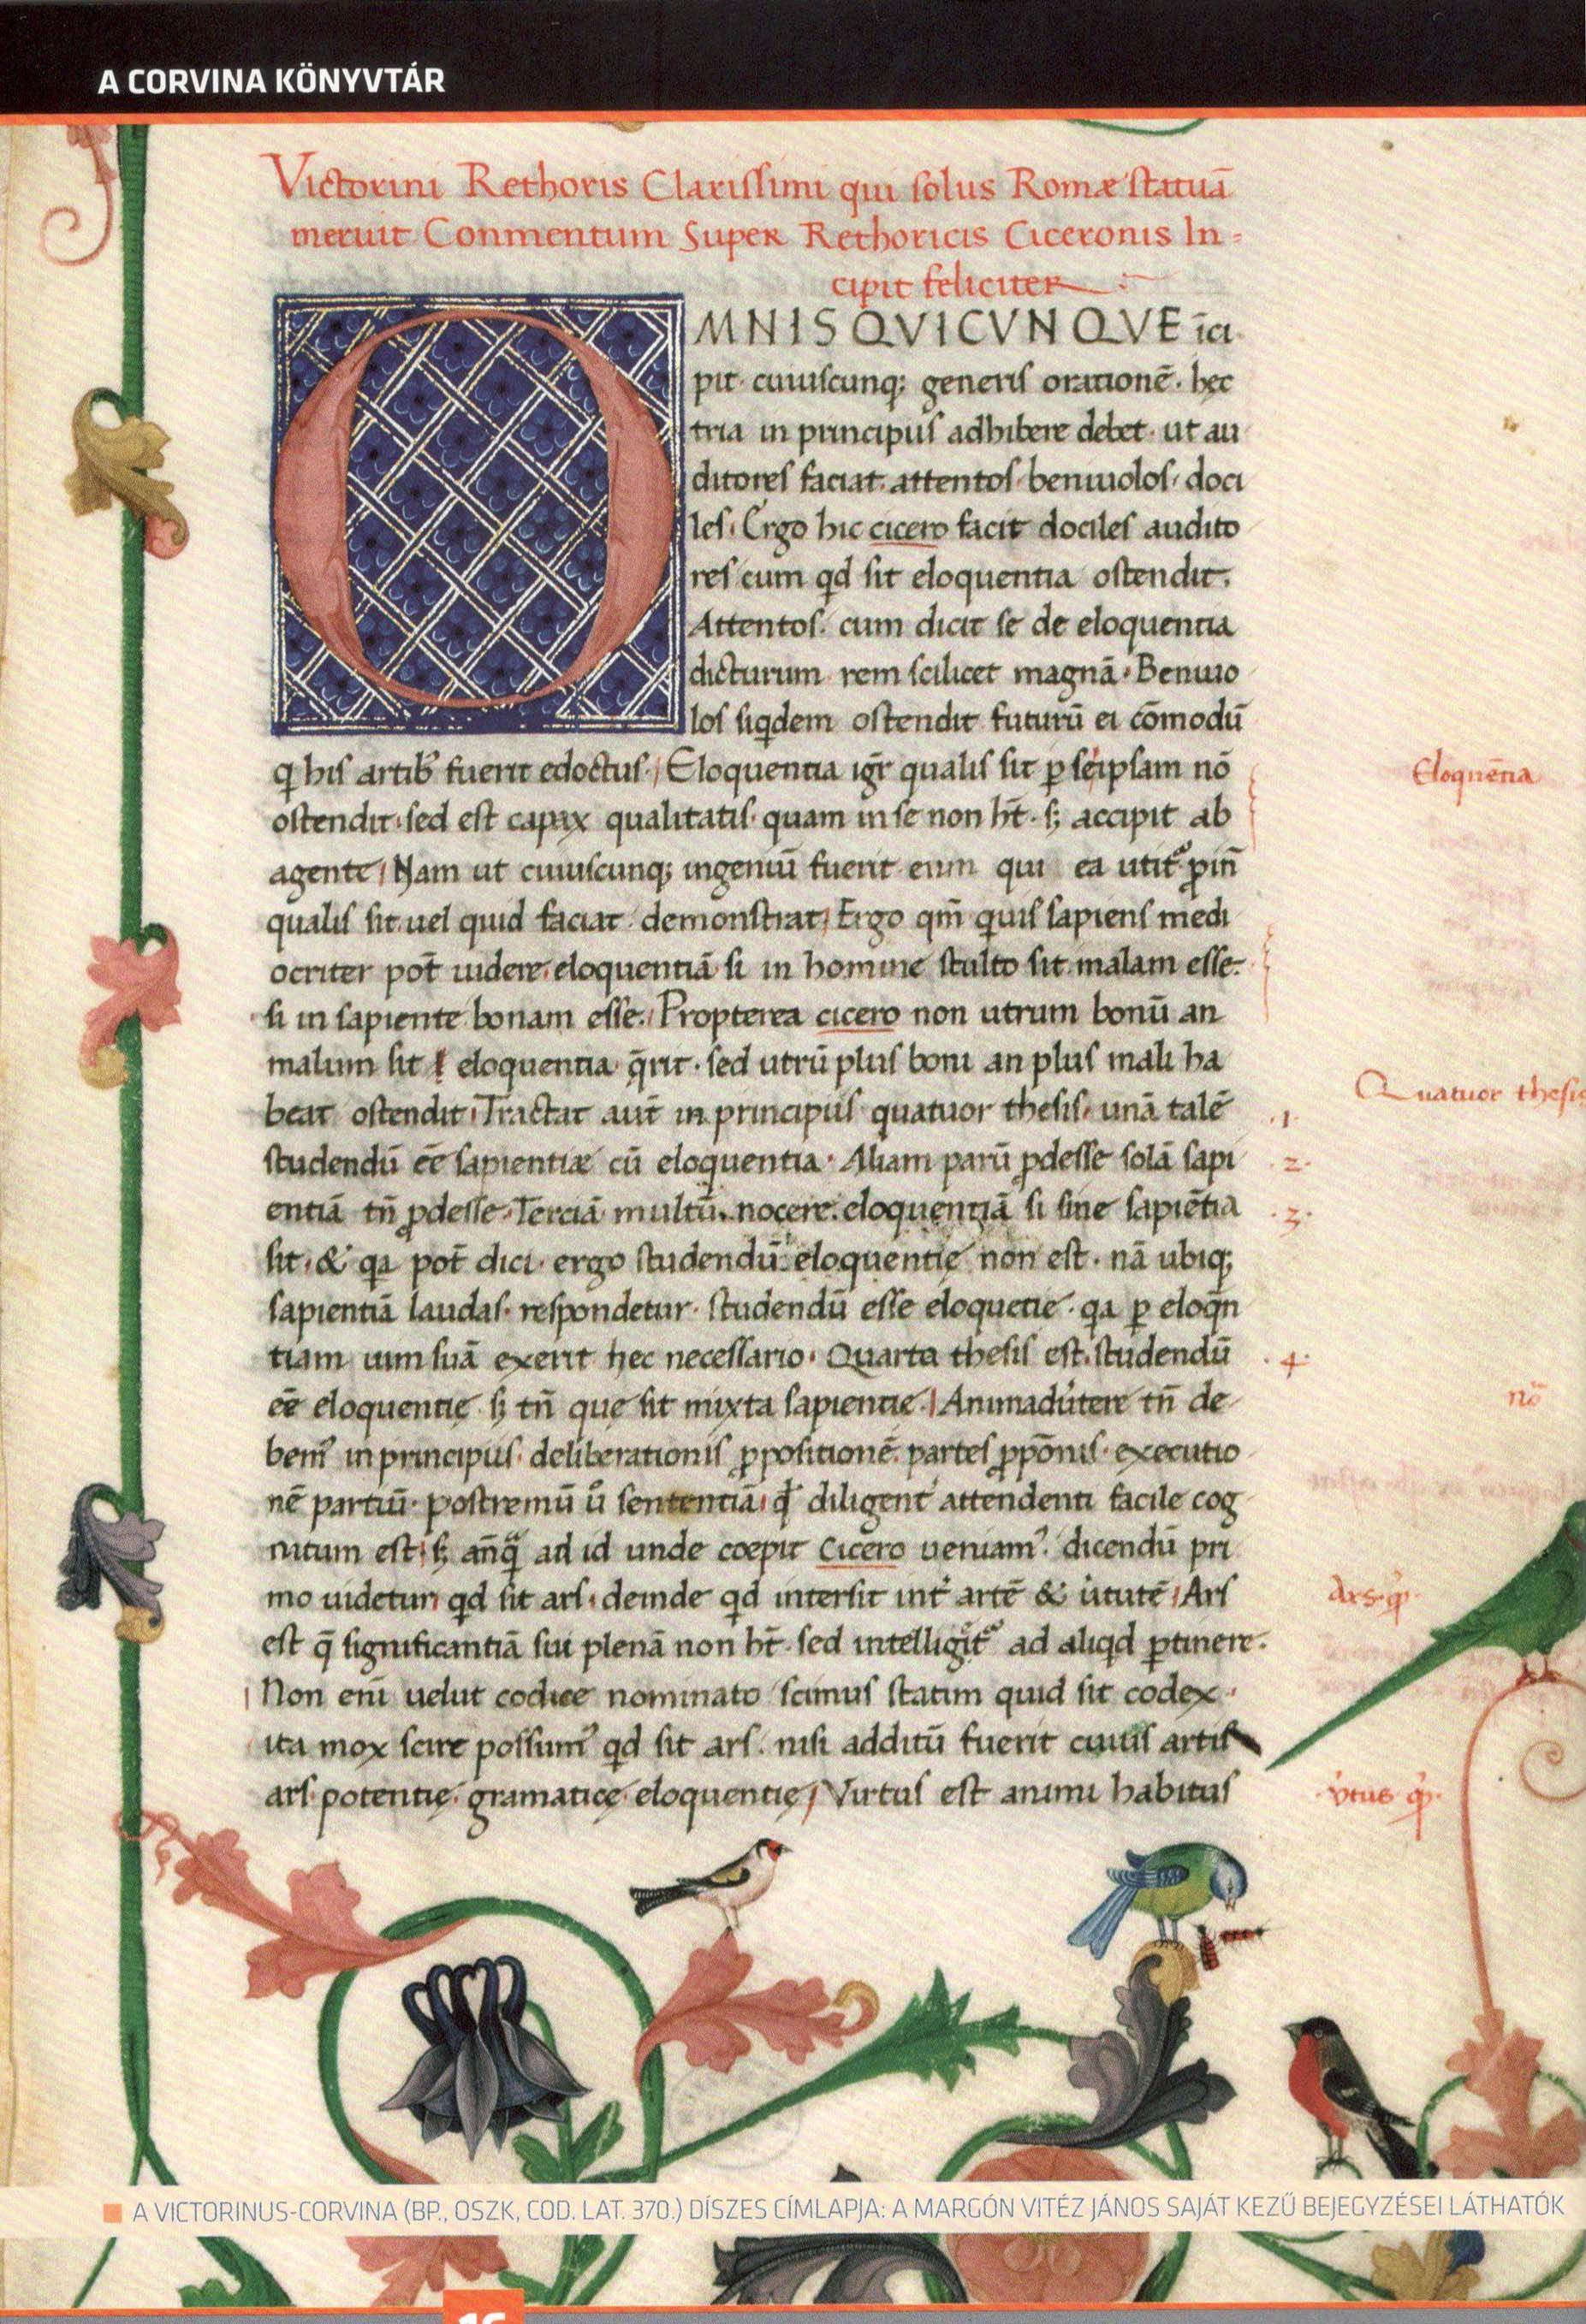 A CORVINA KÖNYVTÁR
Victorini Rethoris Clarissimi qui solus Romæ statuā
meruit Conmentum Super Rethoricis Ciceronis In-
cipit feliciter
OMNIS QVICVNQVE īci
pit cuiuscunq; generis orationē. hec
tria in principiis adhibere debet. ut au
ditores faciat. attentos. beniuolos. doci
les. Ergo hic cicero facit dociles audito
res cum qd sit eloquentia ostendit.
Attentos. cum dicit se de eloquentia
dicturum rem scilicet magnā. Beniuo
los siqdem ostendit futurū ei cōmodū
q his artib⁹ fuerit edoctus. Eloquentia igr̄ qualis sit p seipsam nō
ostendit. sed est capax qualitatis. quam in se non ht̄. s; accipit ab
agente. Nam ut cuiuscunq; ingeniū fuerit eum qui ea utit᷑
qualis sit uel quid faciat demonstrat. Ergo qm̄ quis sapiens medi
ocriter pot̄ uidere. eloquentiā si in homine stulto sit malam esse.
si in sapiente bonam esse. Propterea cicero non utrum bonū an
malum sit eloquentia q̄rit. sed utrū plus boni an plus mali ha
beat ostendit. Tractat aut̄ in principiis quatuor thesis. unā talē
studendū eē sapientiæ cū eloquentia. Aliam parū pdesse solā sapi
entiā tn̄ pdesse. Terciā multū nocere. eloquentiā si sine sapiētia
sit. & qa pot̄ dici. ergo studendū eloquentię non est. nā ubiq;
sapientiā laudas. respondetur. studendū esse eloquētie. qa p eloqn̄
tiam uim suā exerit hec necessario. Quarta thesis est. studendū
eē eloquentię s; tn̄ que sit mixta sapientie. Animadu̇tere tn̄ de
bem⁹ in principiis. deliberationis ppositionē. partes ppōnis. executio
nē partiū. postremū u̇ sententiā. qd̄ diligent᷑ attendenti facile cog
nitum est. s; an̄q̄ ad id unde coepit Cicero ueniam⁹. dicendū pri
mo uidetur qd sit ars. deinde qd intersit int᷑ artē & u̇tutē. Ars
est q̄ significantiā sui plenā non ht̄. sed intelligit᷑ ad aliqd ptinere.
Non eni uelut codice nominato scimus statim quid sit codex.
ita mox scire possum⁹ qd sit ars. nisi additū fuerit cuius artis
ars. potentię. gramaticę. eloquentię. Virtus est animi habitus
Eloquētia
Quatuor thesis
.1.
.2.
.3.
.4.
nō
Ars q
v̇tus q
A VICTORINUS-CORVINA (BP., OSZK, COD. LAT. 370.) DÍSZES CÍMLAPJA: A MARGÓN VITÉZ JÁNOS SAJÁT KEZŰ BEJEGYZÉSEI LÁTHATÓK